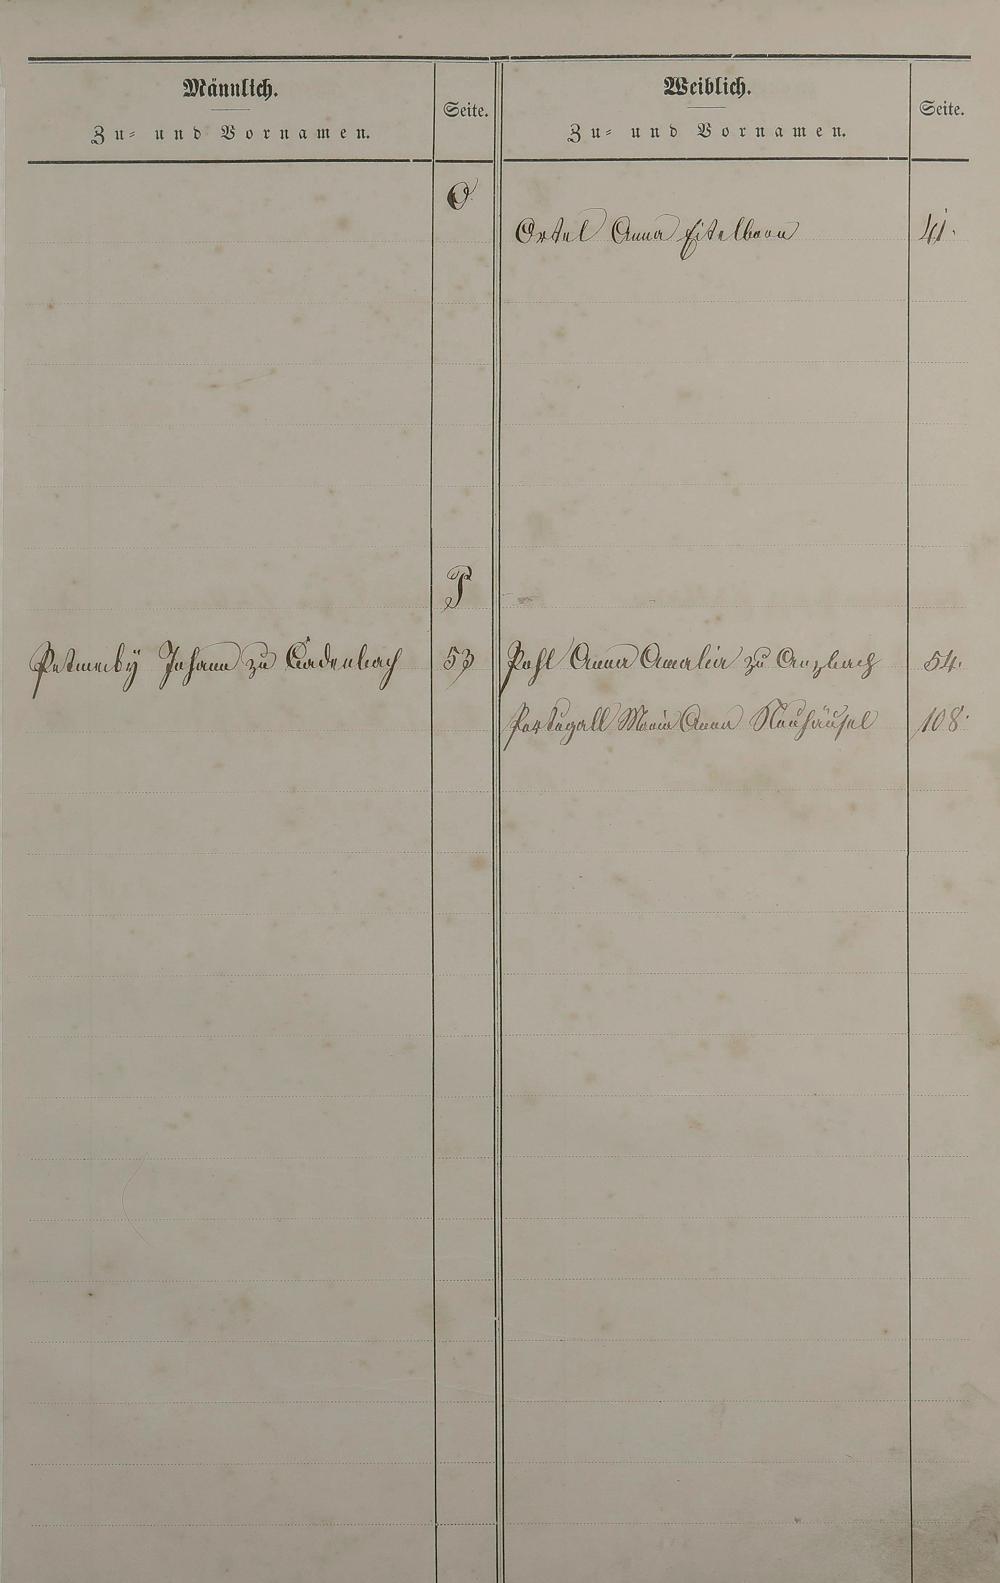 Männlich.
Zu- und Vornamen.
Seite.
Weiblich.
Zu- und Vornamen.
Seite.
O
Ortel Anna Eitelborn 41.
P
Petmecky Johann zu Cadenbach 53 Pohl Anna Amalia zu Arzbach 54.
Portugall Maria Anna Neuhäusel 108.